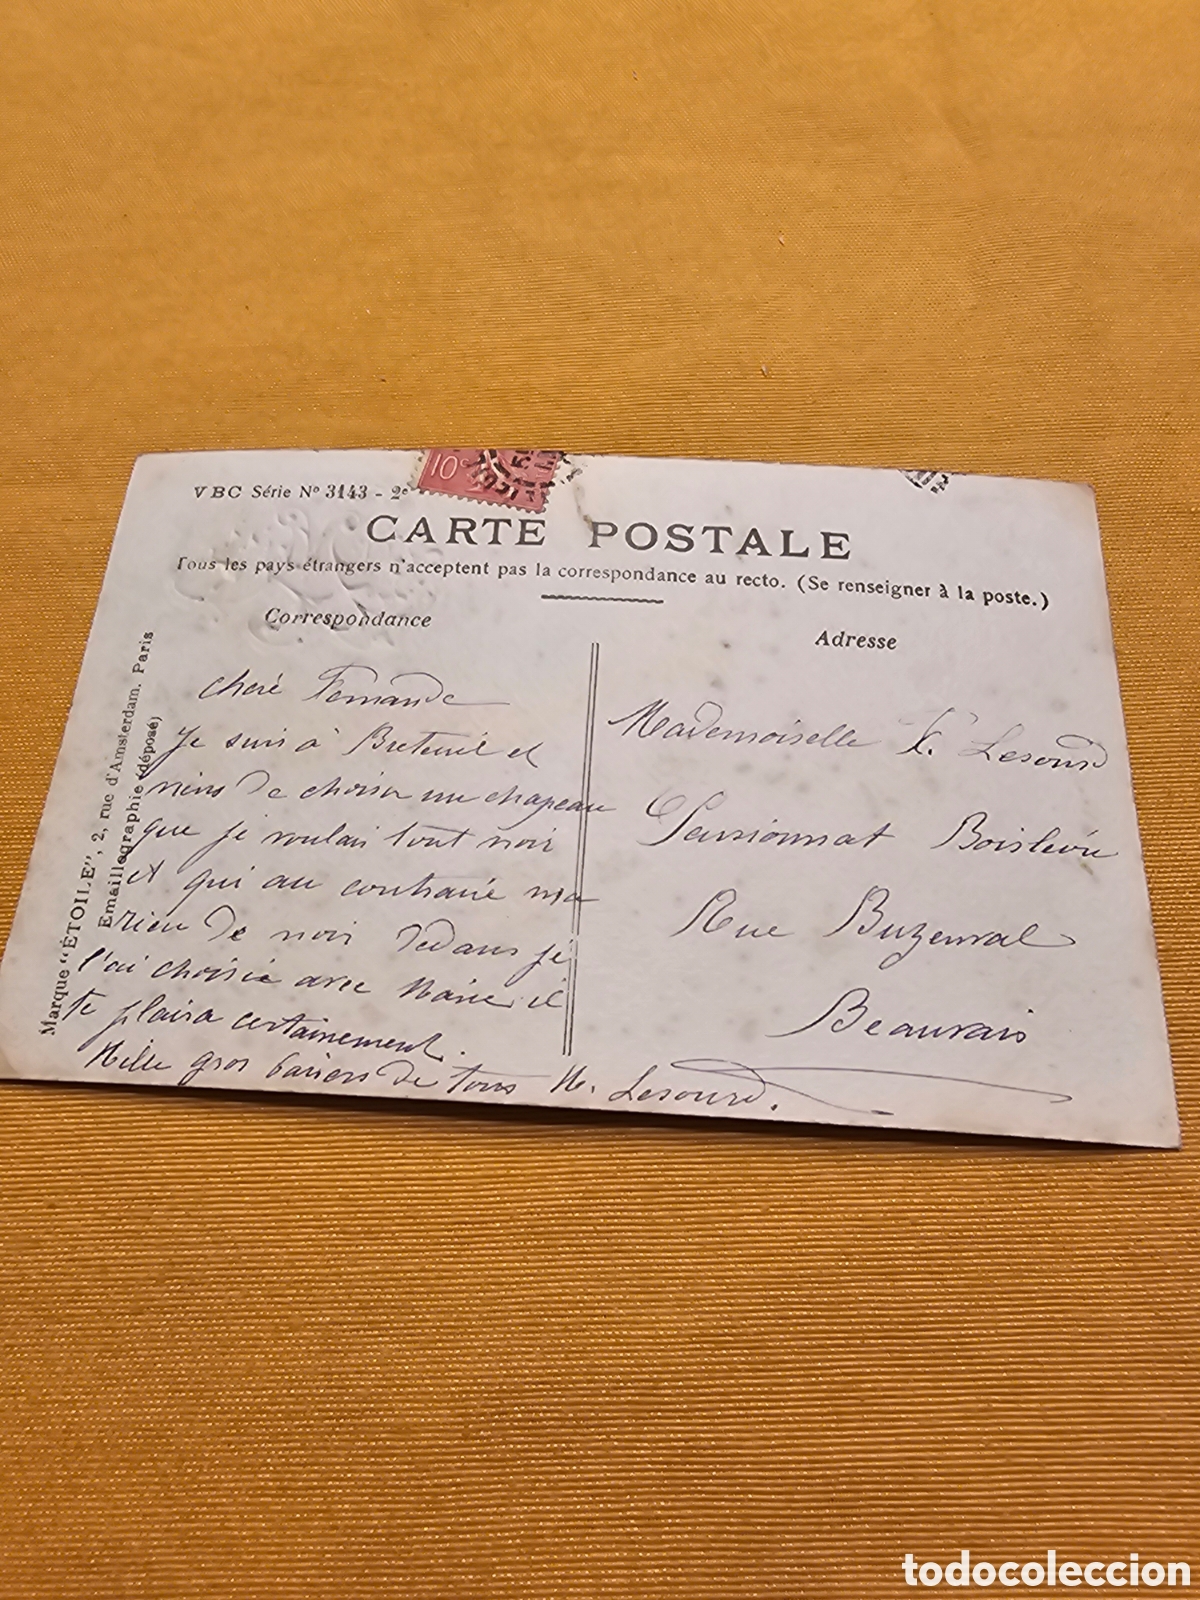 VBC Série Nº 3143 - 2e
10c
CARTE POSTALE
Tous les pays étrangers n'acceptent pas la correspondance au recto. (Se renseigner à la poste.)
Correspondance
Adresse
Marque "ÉTOILE", 2, rue d'Amsterdam. Paris
Emaillographie (déposé)
cheré Fernande
Je suis à Breteuil et
viens de choisir un chapeau
que je voulais tout noir
et qui au contraire n'a
rien de noir dedans je
l'ai choisie avec Marie il
te plaira certainement.
Mille gros baisers de tous M. Lesourd.
Mademoiselle F. Lesourd
Pensionnat Boislevu
Rue Buzenval
Beauvais
todocoleccion